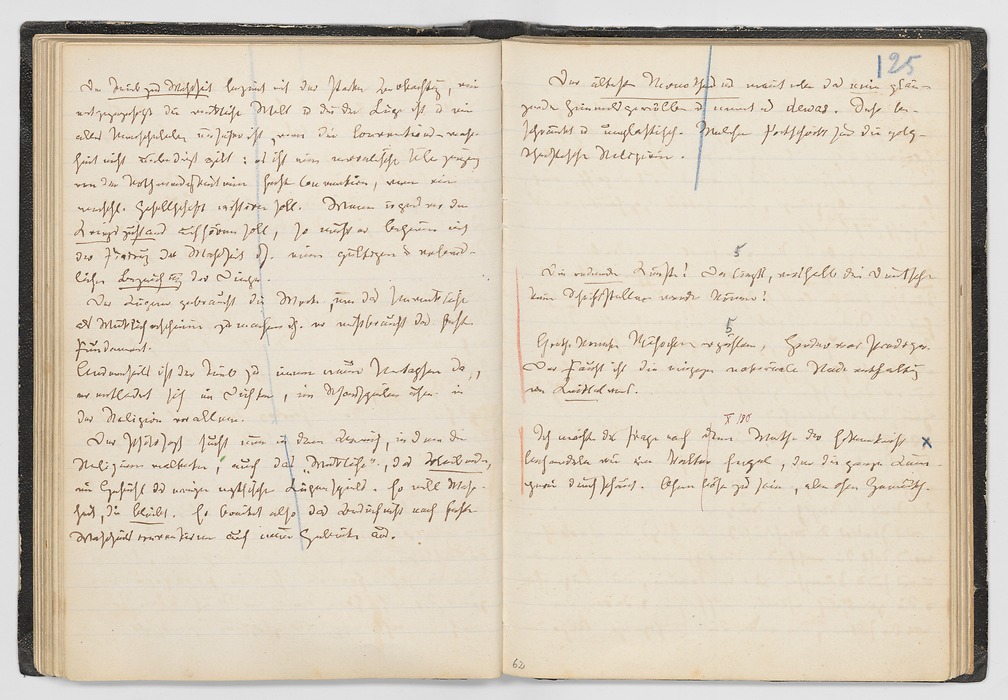 Der Trieb zur Wahrheit beginnt mit der starken Beobachtung, wie
entgegengesetzt die wirkliche Welt u die der Lüge ist u wie
alles Menschenleben unsicher ist, wenn die Conventions-Wahr-
heit nicht unbedingt gilt: es ist eine moralische Ueberzeugung
von der Nothwendigkeit einer festen Convention, wenn eine
menschl. Gesellschaft existiren soll. Wenn irgend wo der
Kriegszustand aufhören soll, so muß er beginnen mit
der Fixirung der Wahrheit dh. einer gültigen u verbind-
lichen Bezeichnung der Dinge.
Der Lügner gebraucht die Worte, um das Unwirkliche
als wirklich erscheinen zu machen dh. er mißbraucht das feste
Fundament.
Andernseits ist der Trieb zu immer neuen Metaphern da,
er entladet sich im Dichter, im Schauspieler usw. in
der Religion vor allem.
Der Philosoph sucht nun in dem Bereich, in dem die
Religionen walteten, auch das „Wirkliche", das Bleibende,
im Gefühl des ewigen mythischen Lügenspiels. Er will Wahr-
heit, die bleibt. Er breitet also das Bedürfniß nach festen
Wahrheitsconventionen auf neue Gebiete aus.
125
Der älteste Monotheism. meint eben das eine glän-
zende Himmelsgewölbe u nennt es dewas. Sehr be-
schränkt u unelastisch. Welcher Fortschritt sind die poly-
theistischen Religionen.
5
Die redenden Künste! Da liegts, weshalb die Deutschen
keine Schriftsteller werden können!
5
Goethe konnte Mährchen erzählen, Herder war Prediger.
Der Faust ist die einzige nationale Rede enthaltend
in Knittelvers.
Ich möchte die Frage nach dem Werthe der Erkenntniß x
behandeln wie ein kalter Engel, der die ganze Lum-
perei durchschaut. Ohne böse zu sein, aber ohne Gemüth.
62